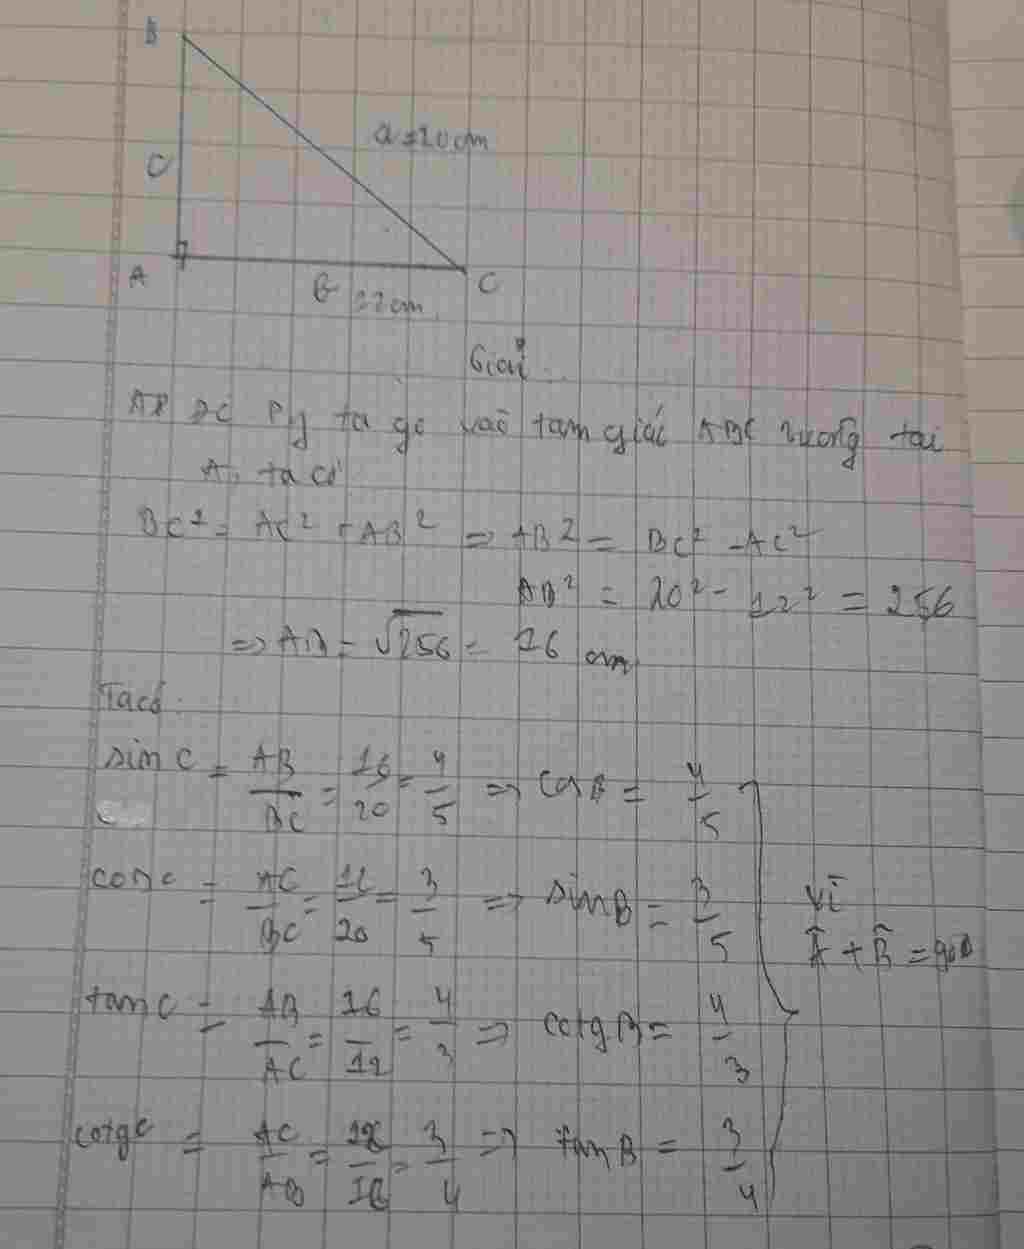 B
a = 20 cm
C
A
b = 12 cm
C
Giải
AD ĐL Py ta go vào tam giác ABC vuông tại
A, ta có
BC² = AC² + AB² => AB² = BC² - AC²
AB² = 20² - 12² = 256
=> AB = √256 = 16 cm
Ta có
sin C = AB/BC = 16/20 = 4/5 => cos B = 4/5
cos C = AC/BC = 12/20 = 3/5 => sin B = 3/5
vì
Â + B̂ = 90°
tan C = AB/AC = 16/12 = 4/3 => cotg B = 4/3
cotg C = AC/AB = 12/16 = 3/4 => tan B = 3/4